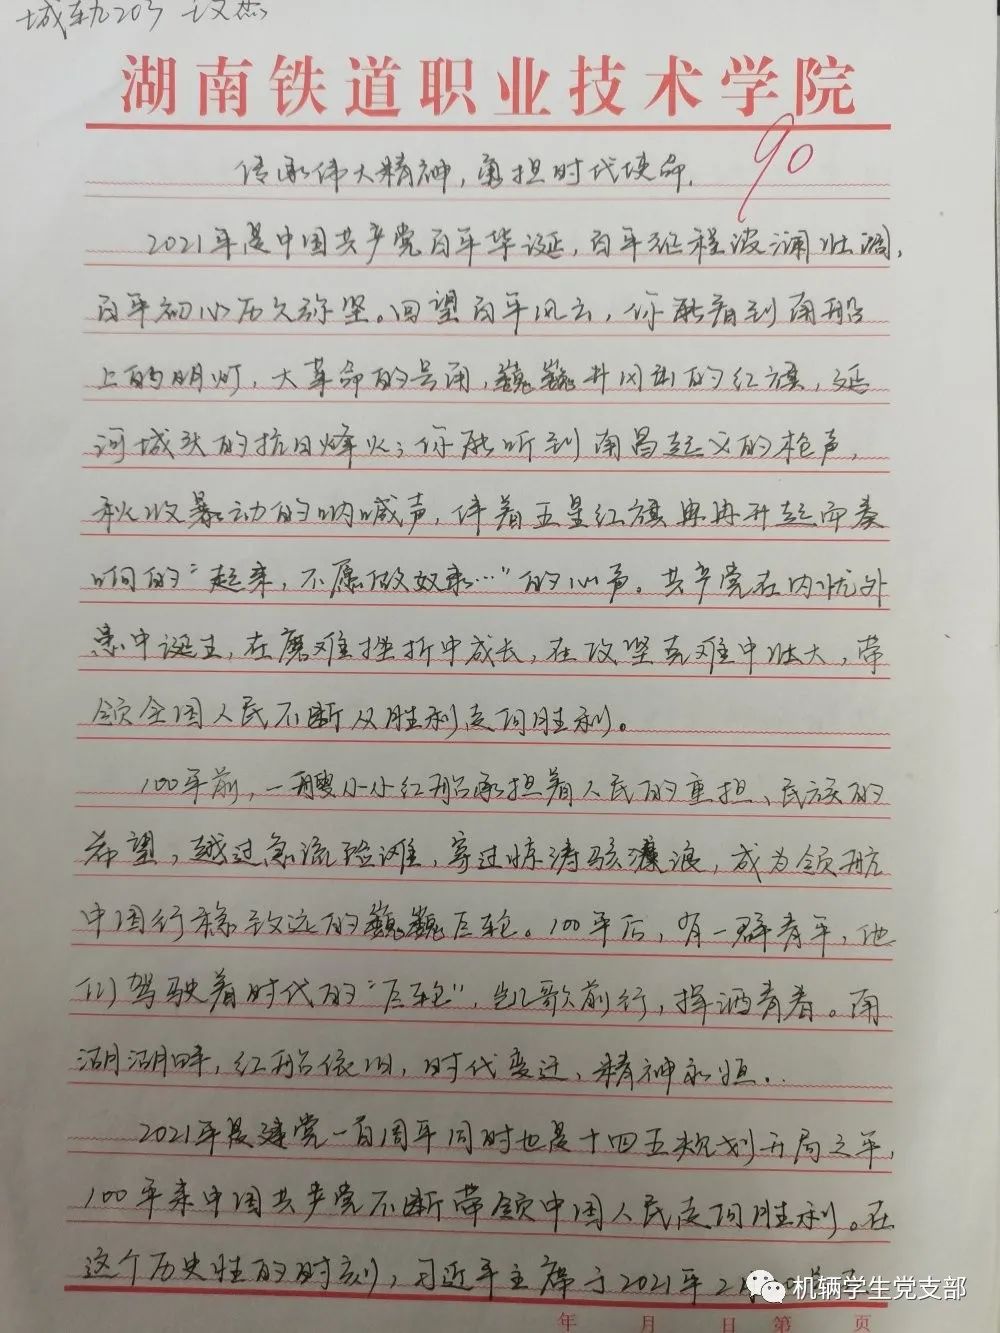 城轨203
湖南铁道职业技术学院
90
传承伟大精神，勇担时代使命.
2021年是中国共产党百年华诞，百年征程波澜壮阔，
百年初心历久弥坚。回望百年风云，你能看到南船
上的明灯，大革命的号角，巍巍井冈山的红旗，延
河城头的抗日烽火；你能听到南昌起义的枪声，
秋收暴动的呐喊声，伴着五星红旗冉冉升起而奏
响的“起来，不愿做奴隶…”的心声。共产党在内忧外
患中诞生，在磨难挫折中成长，在攻坚克难中壮大，带
领全国人民不断从胜利走向胜利。
100年前，一艘小小红船承担着人民的重担、民族的
希望，越过急流险滩，穿过惊涛骇浪，成为领航
中国行稳致远的巍巍巨轮。100年后，有一群青年，他
们驾驶着时代的“巨轮”，凯歌前行，挥洒青春。南
湖湖畔，红船依旧，时代变迁，精神永恒．
2021年是建党一百周年同时也是十四五规划开局之年，
100年来中国共产党不断带领中国人民走向胜利。在
这个历史性的时刻，习近平主席于2021年2月
机辆学生党支部
年 月 日 第 页